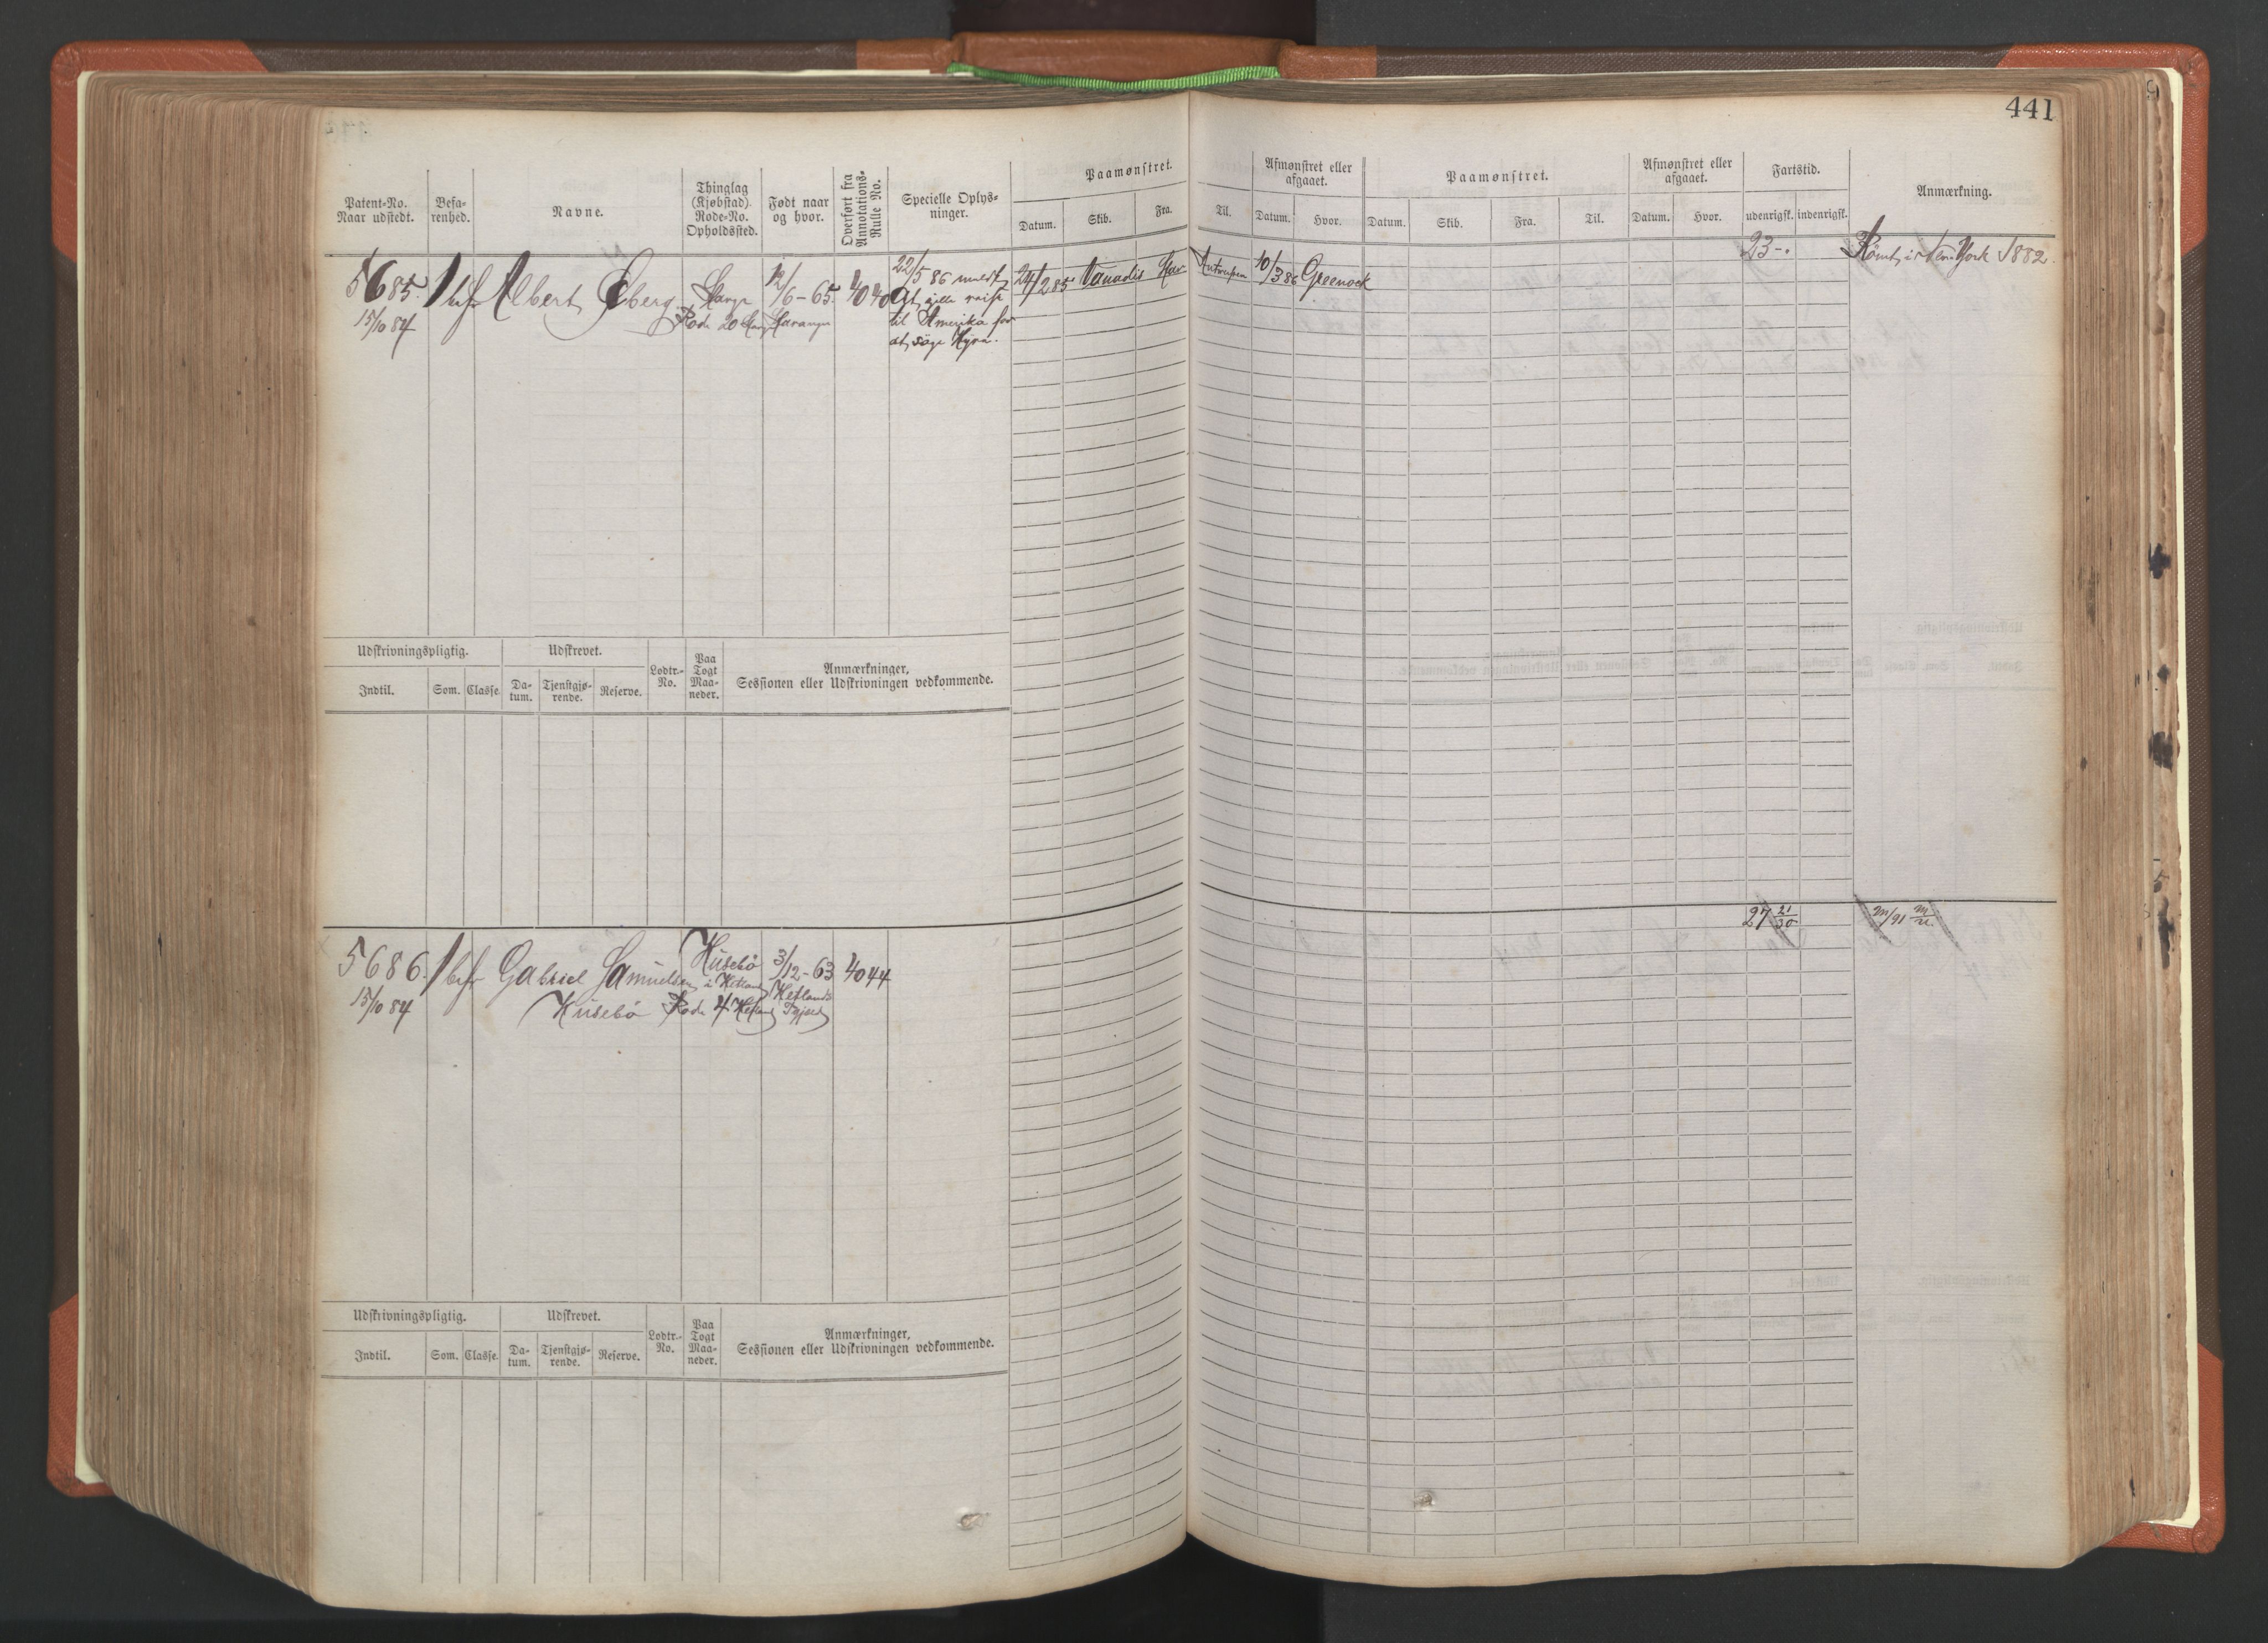 441
Patent-No.
Naar udstedt.
Befa-
renhed.
Navne.
Thinglag
(Kjøbstad).
Rode-No.
Opholdssted.
Født naar
og hvor.
Overført fra
Annotations-
Rulle No.
Specielle Oplys-
ninger.
Paamønstret.
Datum. Skib. Fra.
Til.
Afmønstret eller
afgaaet.
Datum. Hvor.
Paamønstret.
Datum. Skib. Fra. Til.
Afmønstret eller
afgaaet.
Datum. Hvor.
Fartstid.
udenrigsk. indenrigsk.
Anmærkning.
5685. 1 bef Albert Eberg Stavgr 12/6-65. 4040
15/10 84 Rode 20 Stavanger
22/5 86 meldt
at ville reise
til Amerika for
at søge Hyre.
24/2 85 Vanadis Stav Antwerpen 10/3 86 Greenock
23-. Römt i New York 1882.
Udskrivningspligtig. Udskrevet.
Lodtr.-
No.
Paa
Togt
Maa-
neder.
Anmærkninger,
Sessionen eller Udskrivningen vedkommende.
Indtil. Som. Classe.
Da-
tum.
Tjenstgjø-
rende.
Reserve.
5686. 1 bef Gabriel Samuelsen Husebö 3/12-63 4044
i Hetland Hetlands
15/10 84 Husebö Rode 4 Hetland
27 21/30
Udskrivningspligtig. Udskrevet.
Lodtr.-
No.
Paa
Togt
Maa-
neder.
Anmærkninger,
Sessionen eller Udskrivningen vedkommende.
Indtil. Som. Classe.
Da-
tum.
Tjenstgjø-
rende.
Reserve.